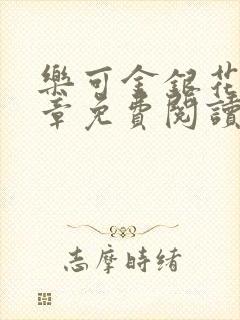 樂可金銀花
章免費閱讀
志摩時緒